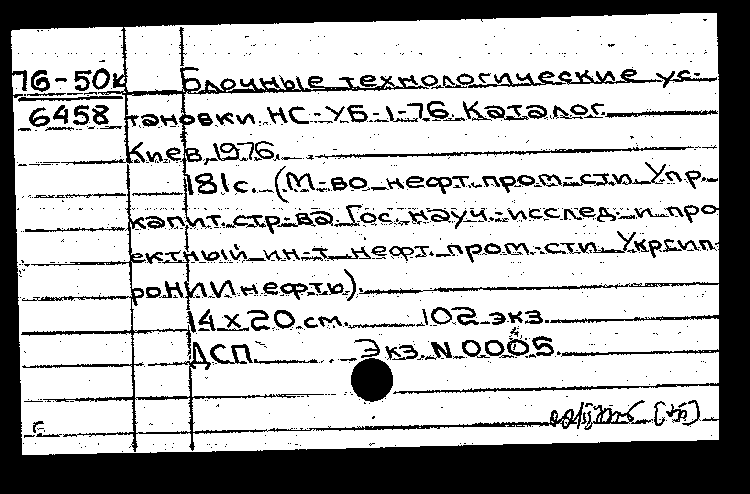 76-50к Блочные технологические ус-
6458 тановки НС-УБ-1-76. Каталог.
Киев, 1976.
181с. (М-во нефт. пром-сти. Упр.
капит. стр-ва. Гос. науч.-исслед. и про
ектный ин-т нефт. пром-сти. Укргип
роНИИнефть).
14 x 20 см. 102 экз.
ДСП. Экз. N 0005.